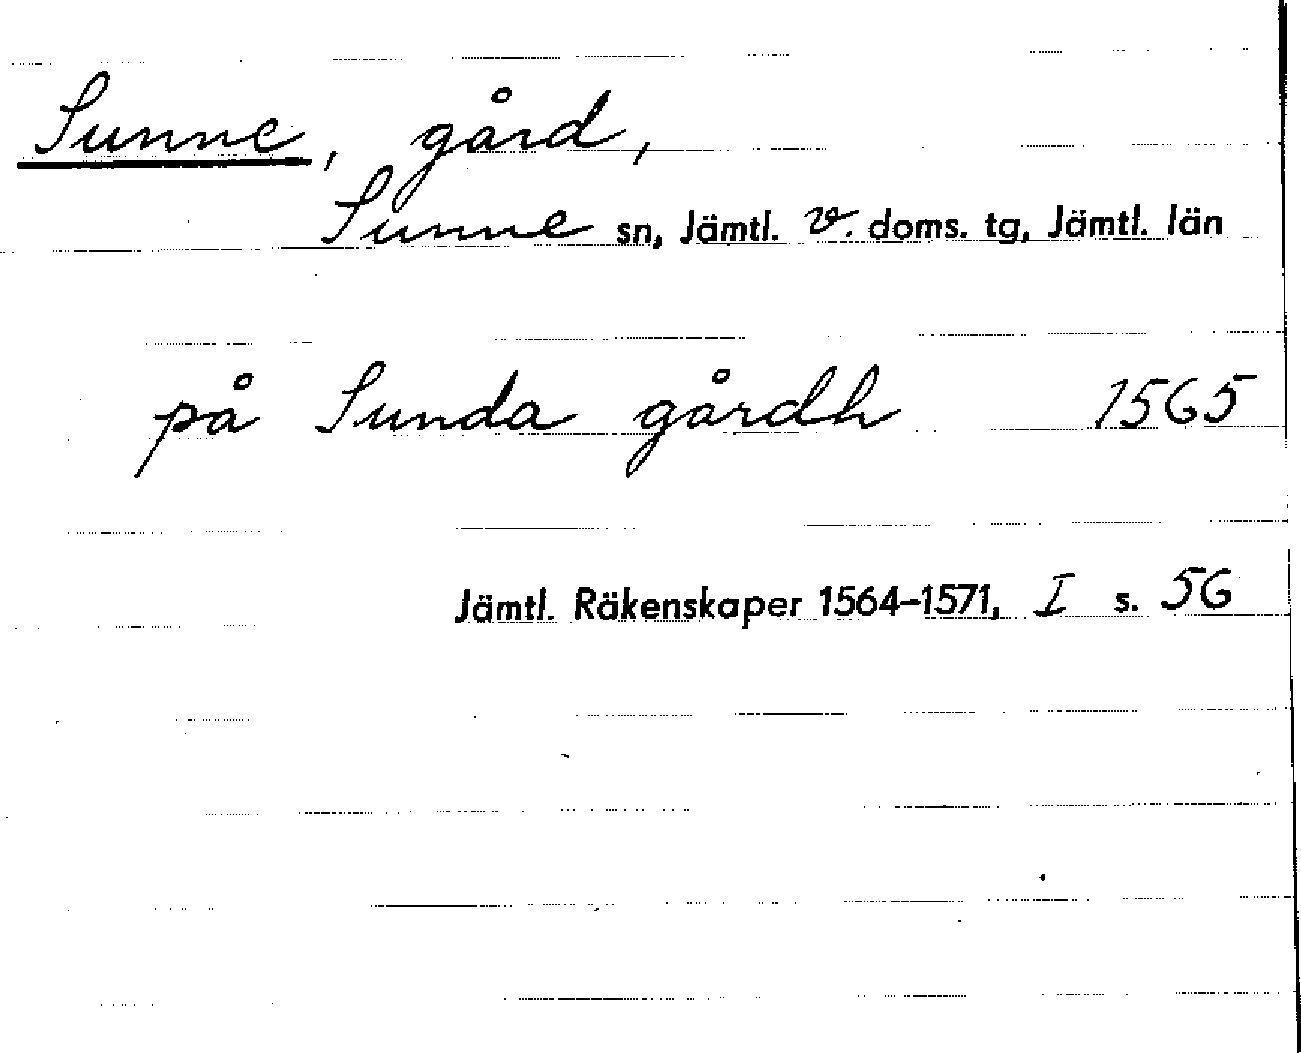 Sunne, gård,
Sunne sn, Jämtl. v. doms. tg, Jämtl. län
på Sunda gårdh 1565
Jämtl. Räkenskaper 1564-1571, I s. 56